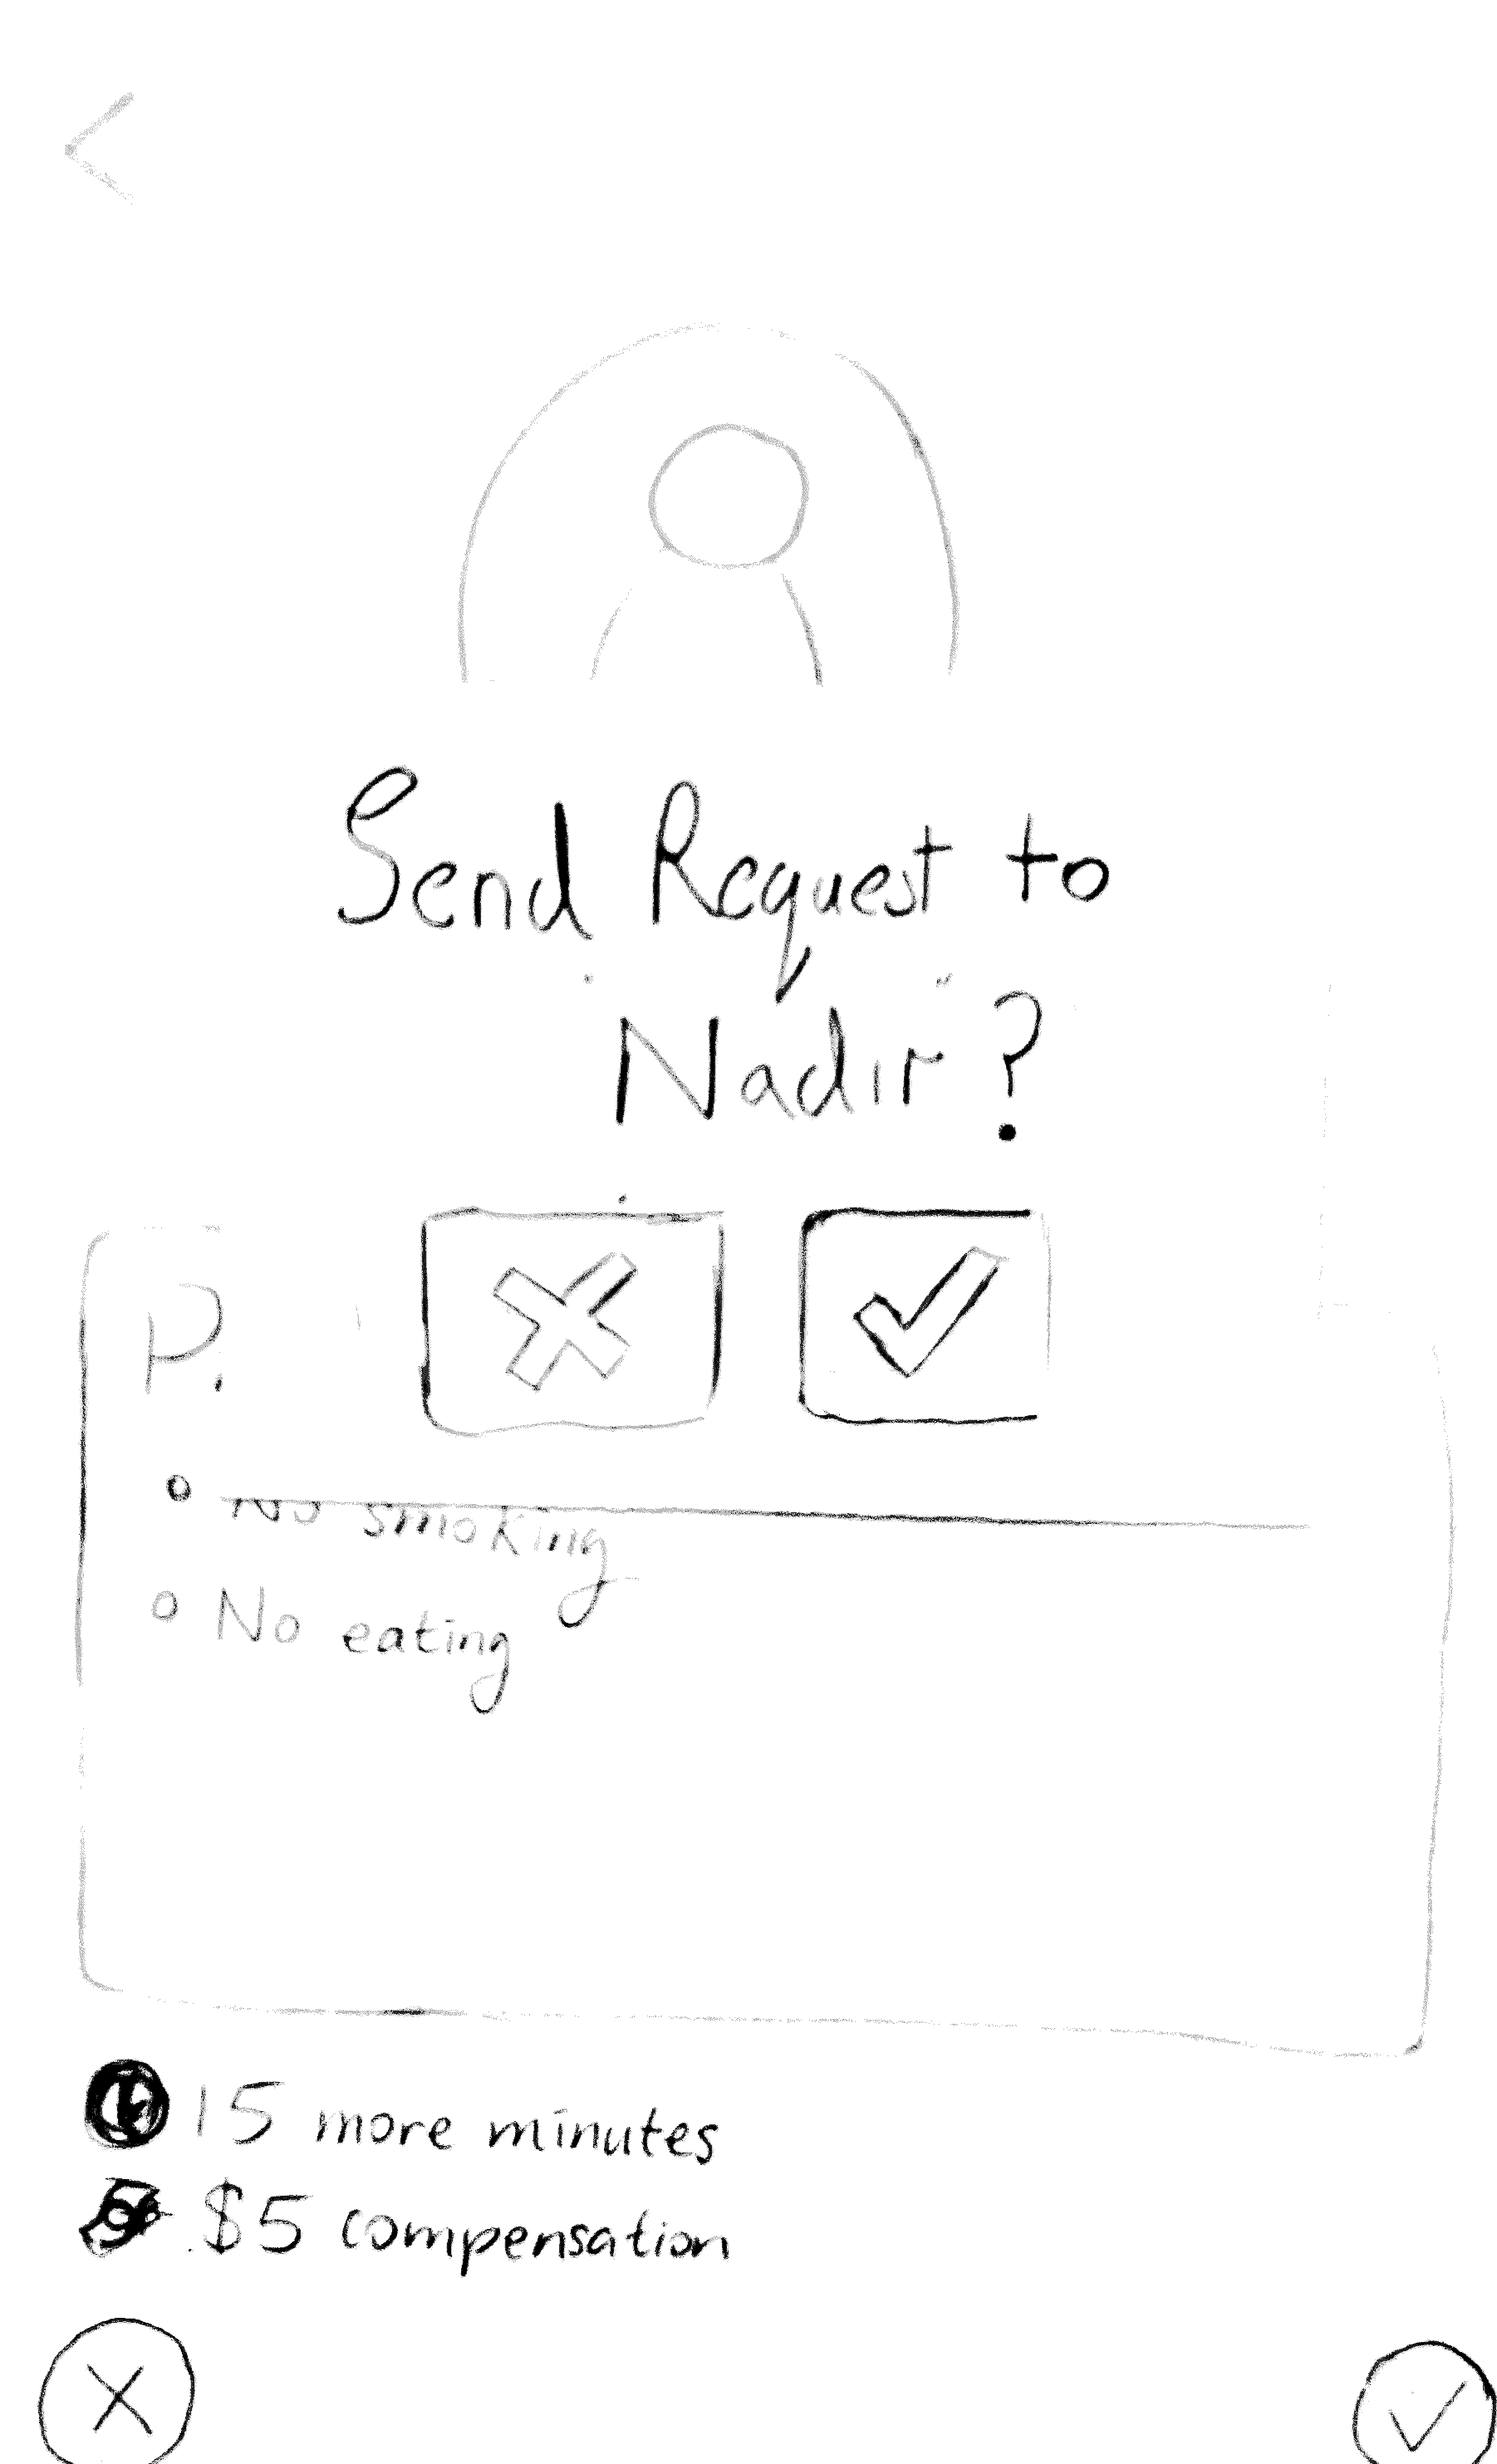 Send Request to
Nadir?
P.
No smoking
No eating
15 more minutes
$5 compensation